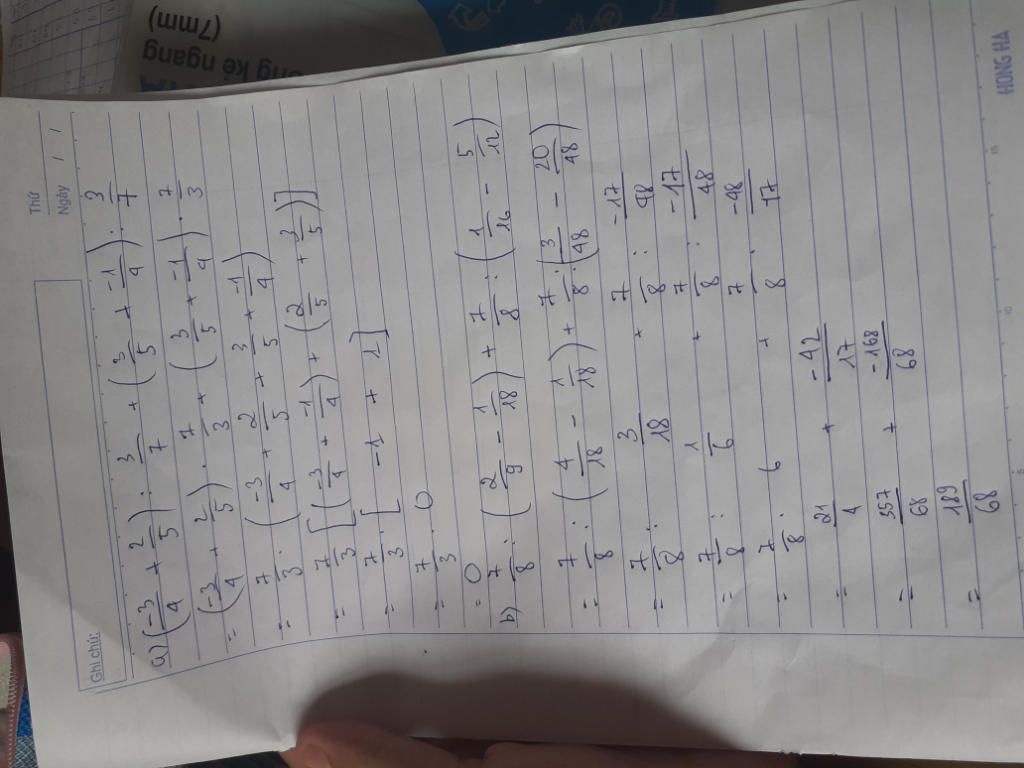 ng kẻ ngang
(7mm)
Ghi chú:
Thứ
Ngày / /
a) (-3/4 + 2/5) : 3/7 + (3/5 + -1/4) : 3/7
= (-3/4 + 2/5) . 7/3 + (3/5 + -1/4) . 7/3
= 7/3 . (-3/4 + 2/5 + 3/5 + -1/4)
= 7/3 [(-3/4 + -1/4) + (2/5 + 3/5)]
= 7/3 . [ -1 + 1 ]
= 7/3 . 0
= 0
b) 7/8 : (2/9 - 1/18) + 7/8 : (1/16 - 5/12)
= 7/8 : (4/18 - 1/18) + 7/8 : (3/48 - 20/48)
= 7/8 : 3/18 + 7/8 : -17/48
= 7/8 : 1/6 + 7/8 : -17/48
= 7/8 . 6 + 7/8 . -48/17
= 21/4 + -42/17
= 357/68 + -168/68
= 189/68
HONG HA